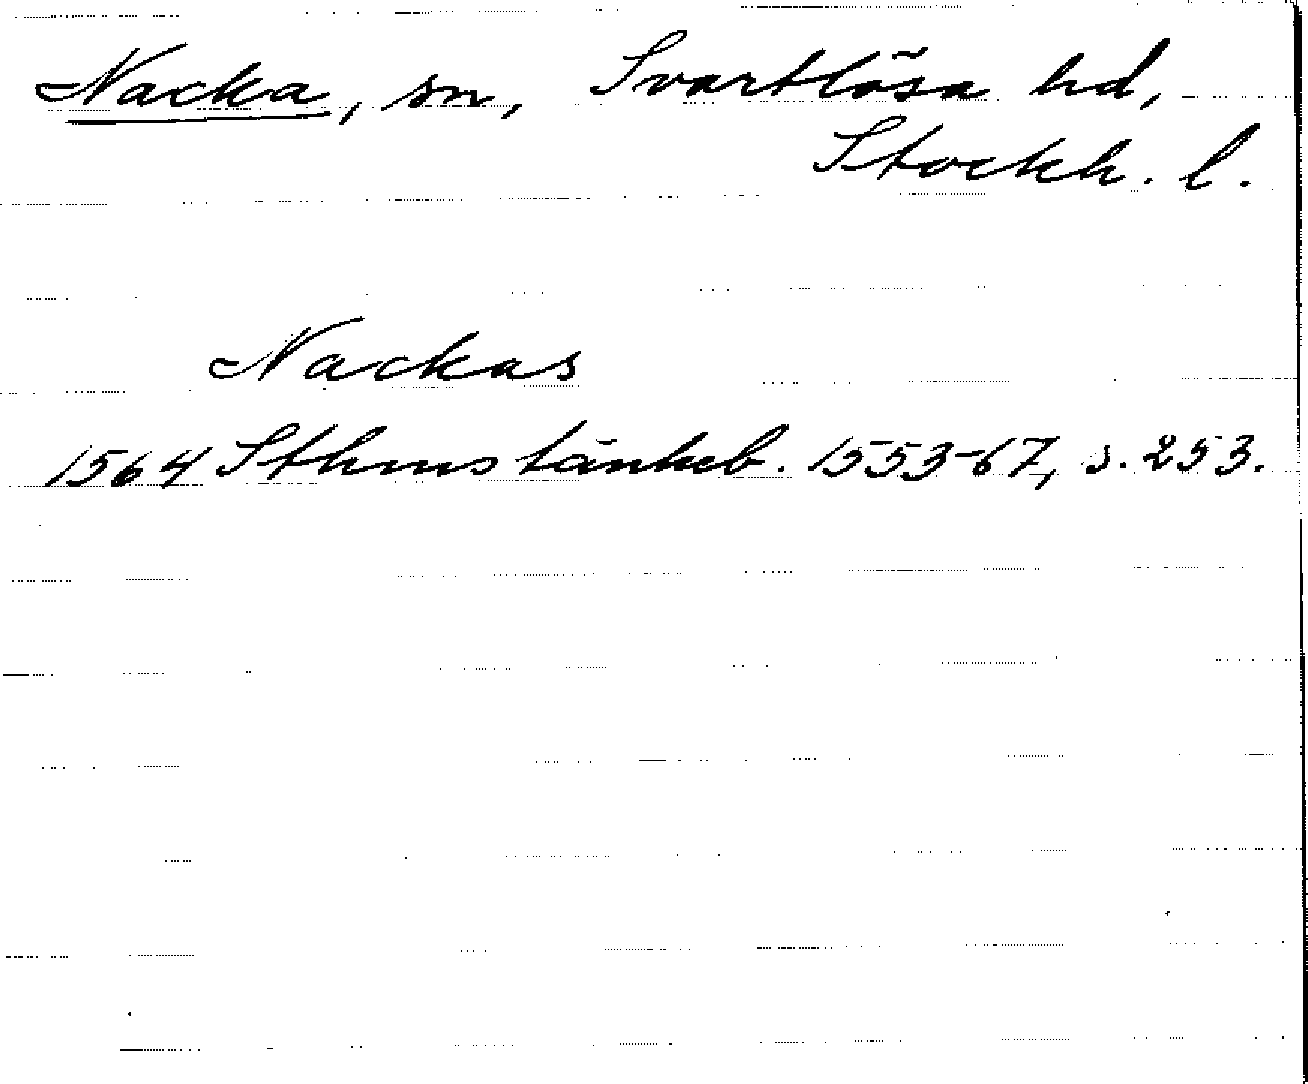 Nacka, sn, Svartlösa hd,
Stockh. l.
Nackas
1564 Sthms tänkeb. 1553-67, s. 253.